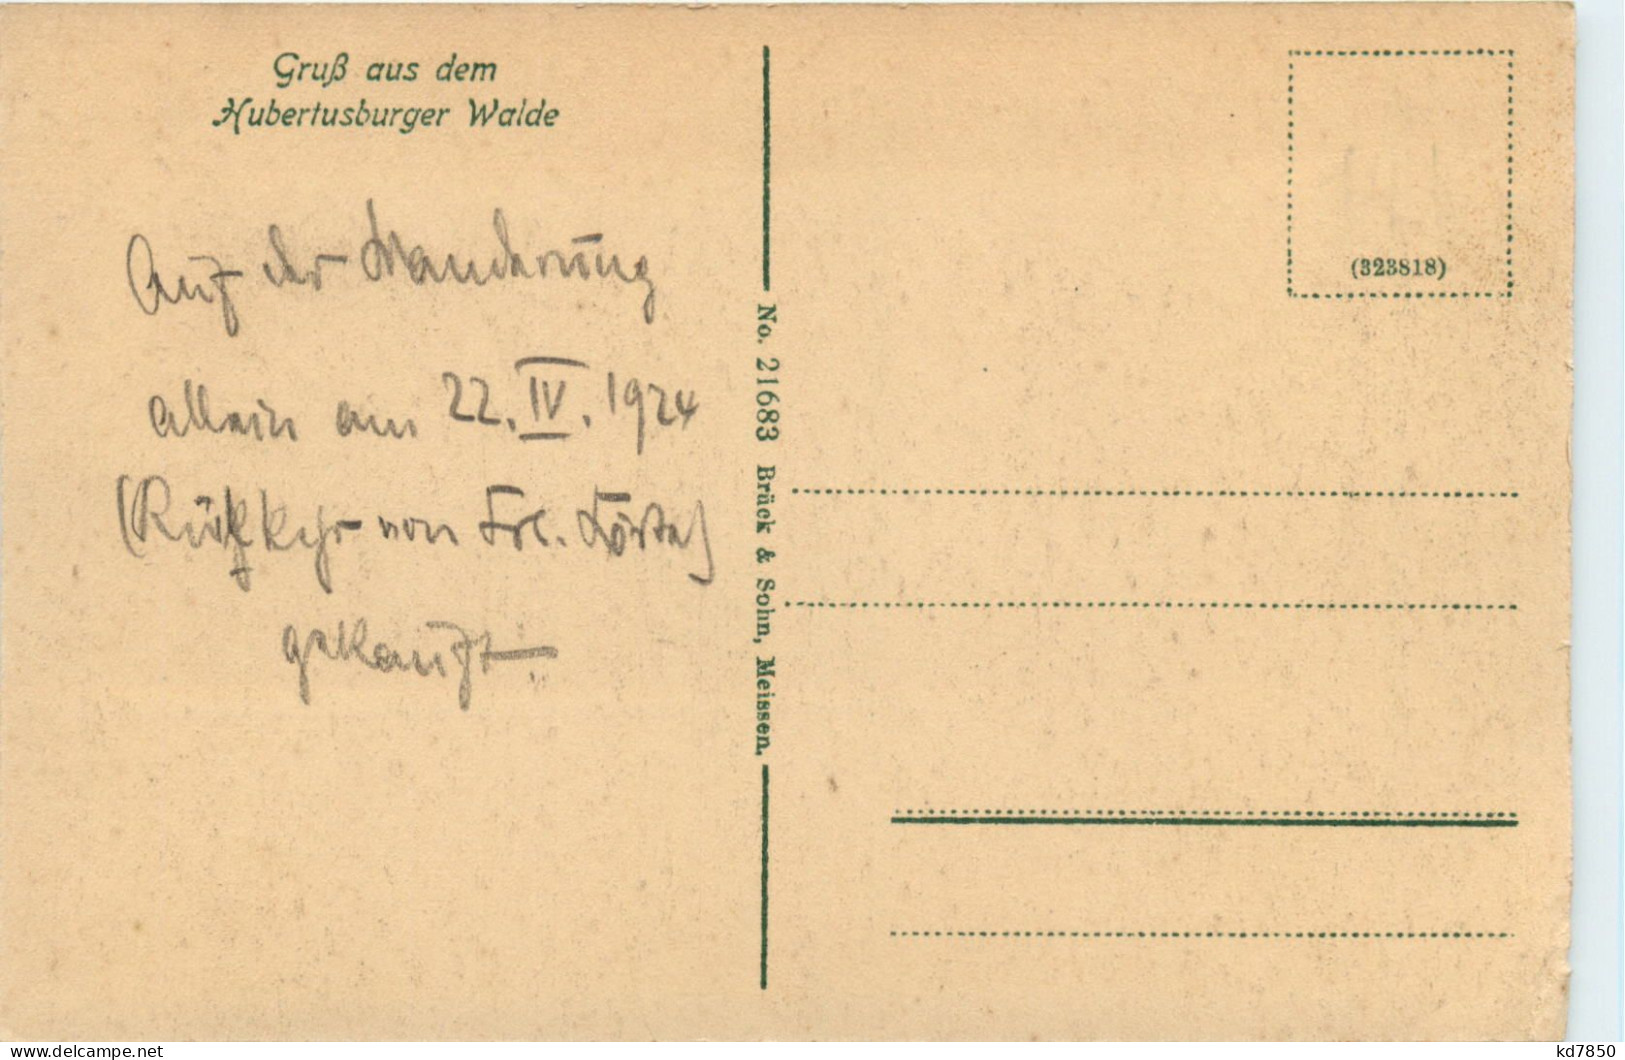 Gruß aus dem
Hubertusburger Walde
Auf der Wanderung
allein am 22. IV. 1924
(Rückkehr von Frl.
gekauft.
No. 21683 Brück & Sohn, Meissen.
(323818)
kd7850